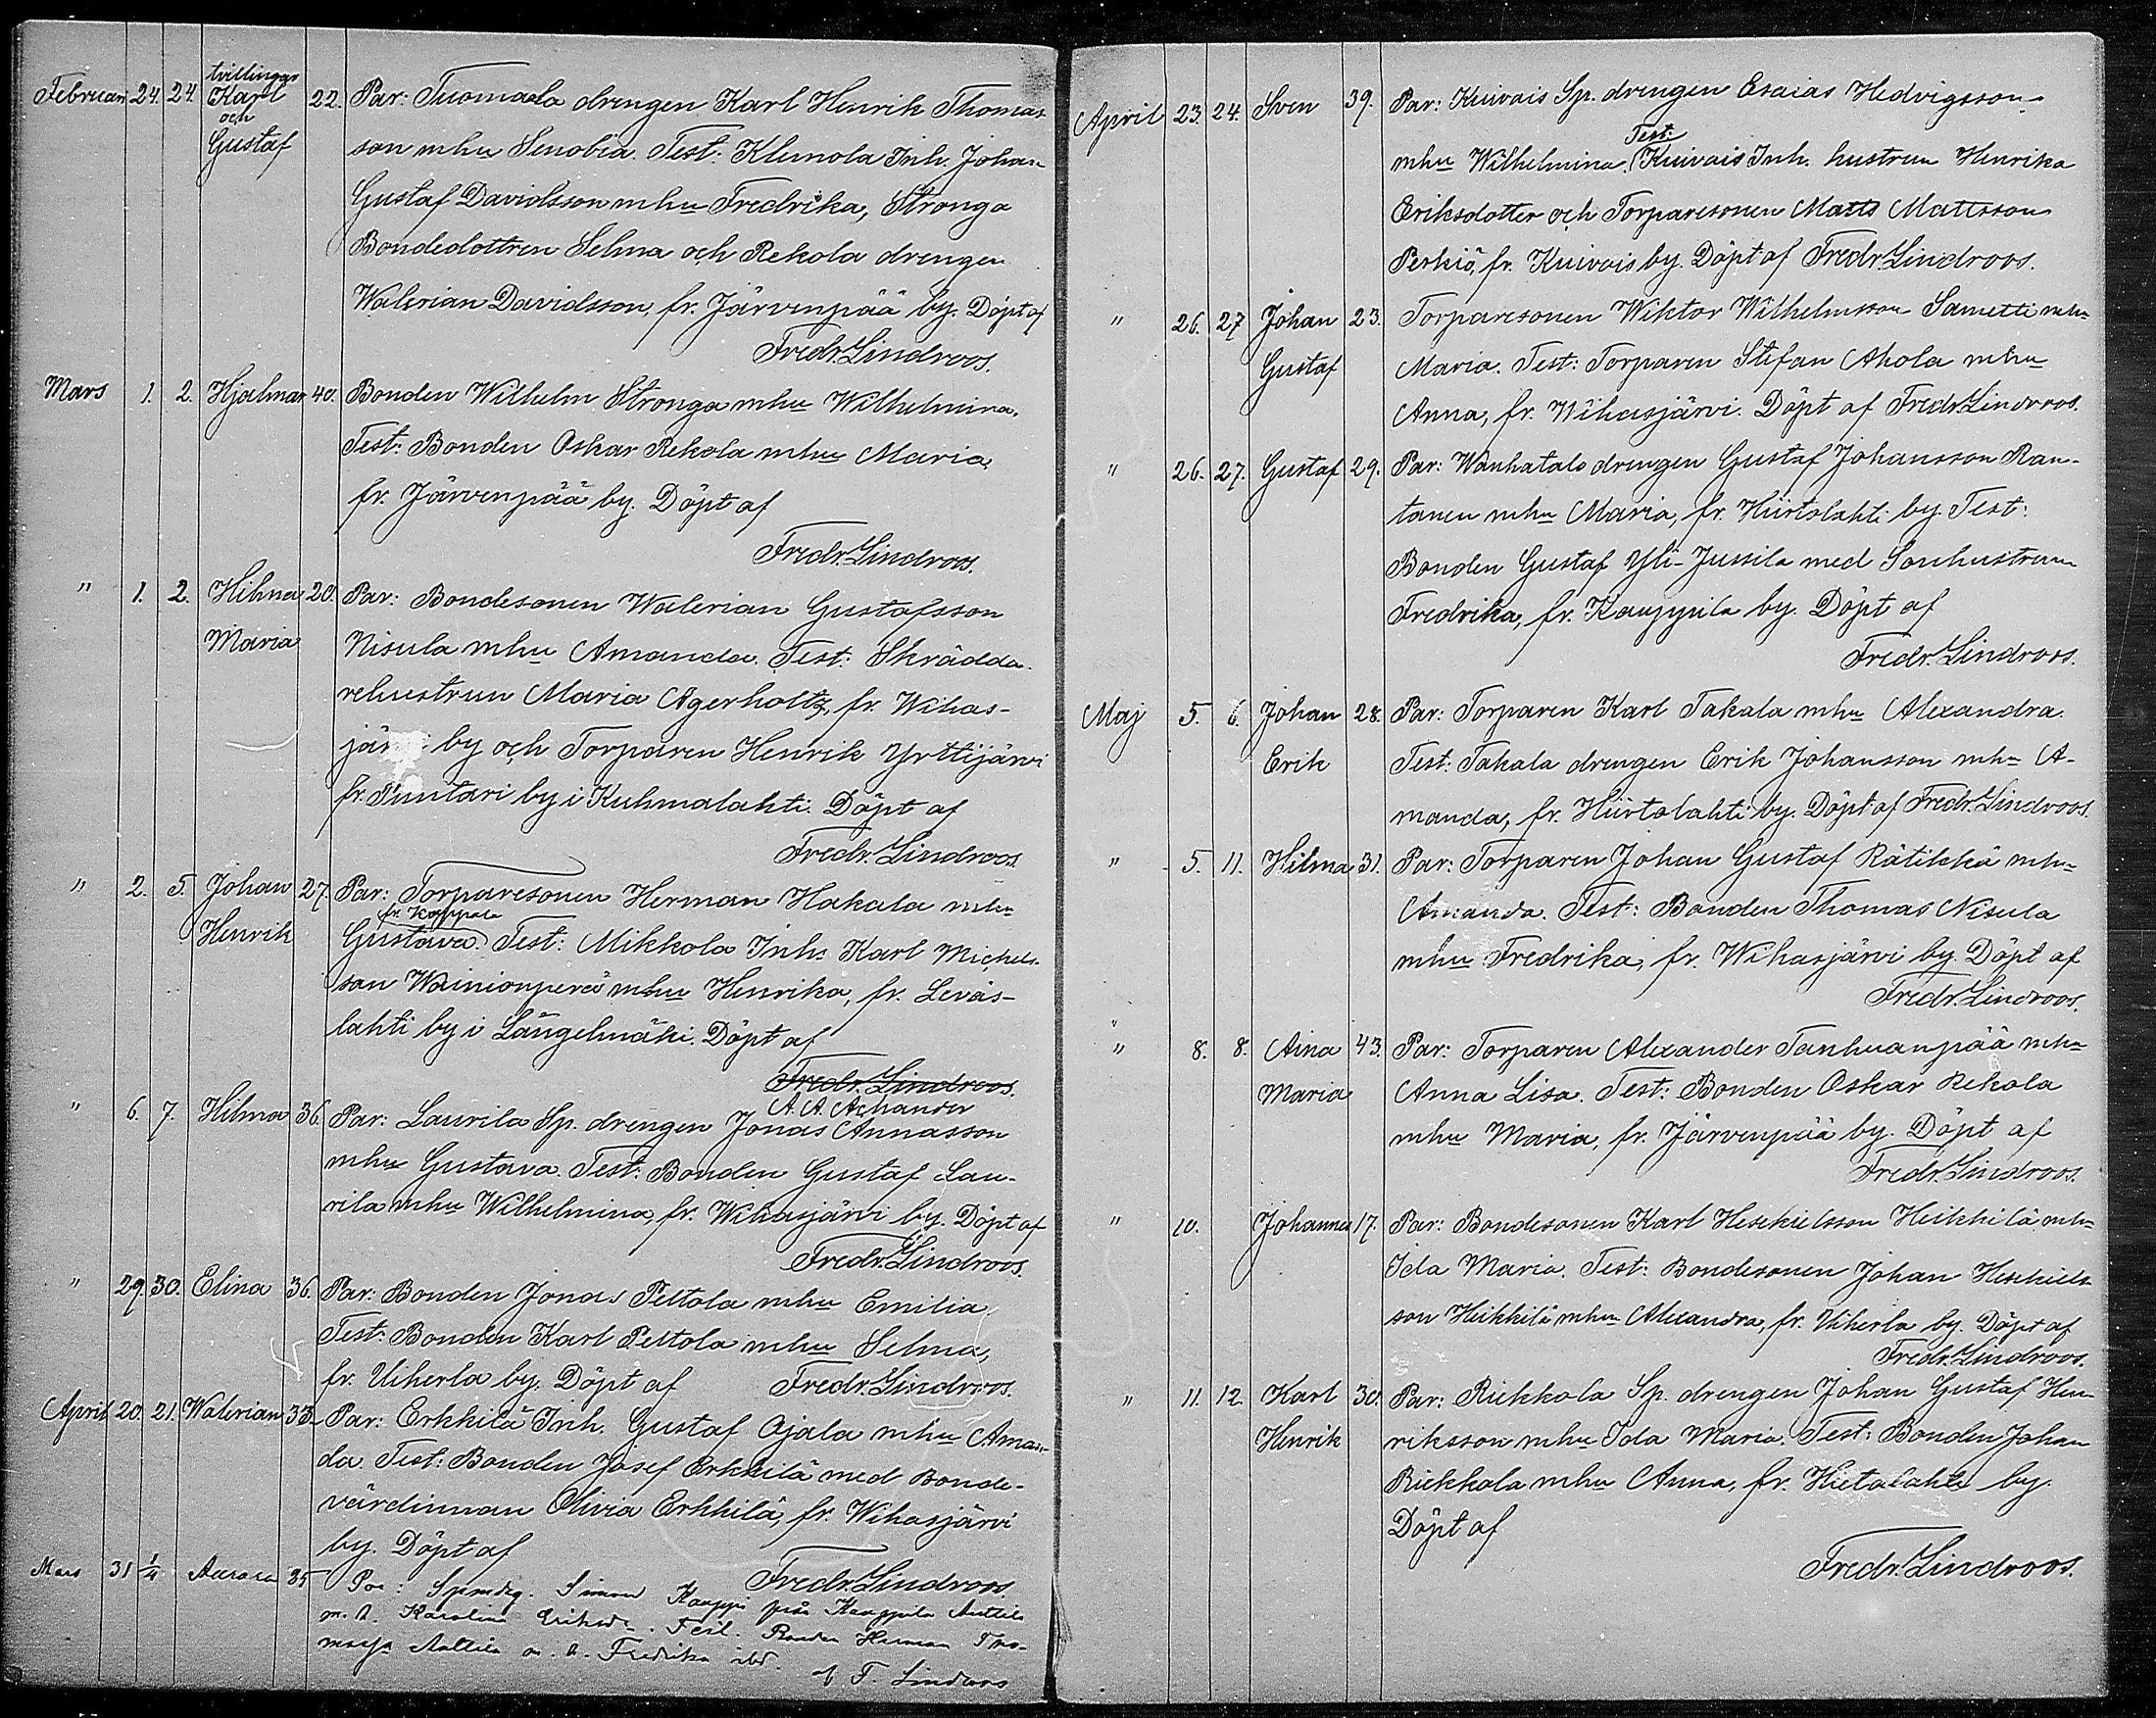 tvillingar
Februari 24. 24. Karl 22. Par: Tuomaala drengen Karl Henrik Thomas-
och
Gustaf son mhu Senobia. Test: Klemola Inh. Johan
Gustaf Davidsson mhu Fredrika, Stronga
Bondedottren Selma och Rekola drengen
Walerian Davidsson, fr. Järvenpää by. Döpt af
Fredr. Lindroos.
Mars 1. 2. Hjalmar 40. Bonden Wilhelm Stronga mhu Wilhelmina.
Test: Bonden Oskar Rekola mhu Maria,
fr. Järvenpää by. Döpt af
Fredr. Lindroos.
" 1. 2. Hilma 20. Par: Bondesonen Walerian Gustafsson
Maria Nisula mhu Amanda. Test: Skrädda-
rehustrun Maria Agerholtz, fr. Wihas-
järvi by och Torparen Henrik Yrttijärvi
fr. Puntari by i Kuhmalahti. Döpt af
Fredr. Lindroos.
" 2. 5. Johan 27. Par: Torparesonen Herman Hakala mhu
fr. Kappala
Henrik Gustava. Test: Mikkola Inh. Karl Michels-
son Wäinionperä mhu Henrika, fr. Leväs-
lahti by i Längelmäki. Döpt af
Fredr. Lindroos.
A. A. Achander
" 6. 7. Hilma 36. Par: Laurila Sp. drengen Jonas Annasson
mhu Gustava. Test: Bonden Gustaf Lau-
rila mhu Wilhelmina, fr. Wihasjärvi by. Döpt af
Fredr. Lindroos.
" 29. 30. Elina 36. Par: Bonden Jonas Peltola mhu Emilia,
Test: Bonden Karl Peltola mhu Selma,
fr. Uiherla by. Döpt af Fredr. Lindroos.
April 20. 21. Walerian 33. Par: Erkkilä Inh. Gustaf Ojala mhu Aman-
da. Test: Bonden Josef Erkkilä med Bonde-
värdinnan Olivia Erkkilä, fr. Wihasjärvi
by. Döpt af
Fredr. Lindroos.
Mars 31 1/4 Aurora 35 Par: Simon Kauppi från Kauppila Anttila
m. h. Karolina Eriksdr. Test. Bonden Herman Tuo-
maala Anttila m. h. Fredrika ibd.
af F. Lindroos
April 23. 24. Sven 39. Par: Kuivais Sp. drengen Esaias Hedvigsson
Test:
mhu Wilhelmina. Kuivais Inh. hustrun Henrika
Eriksdotter och Torparesonen Matts Mattsson
Perkiö, fr. Kuivais by. Döpt af Fredr. Lindroos.
" 26. 27 Johan 23. Torparesonen Wiktor Wilhelmsson Sametti mhu
Gustaf Maria. Test: Torparen Stefan Ahola mhu
Anna, fr. Wihasjärvi. Döpt af Fredr. Lindroos.
" 26. 27. Gustaf 29. Par: Wanhatalo drengen Gustaf Johansson Ran-
tanen mhu Maria, fr. Hiirtolahti by. Test:
Bonden Gustaf Yli-Jussila med Sonhustrun
Fredrika, fr. Kauppila by. Döpt af
Fredr. Lindroos.
Maj 5. 6. Johan 28. Par: Torparen Karl Takala mhu Alexandra.
Erik Test: Takala drengen Erik Johansson mhu A-
manda, fr. Hiirtolahti by. Döpt af Fredr. Lindroos.
" 5. 11. Hilma 31. Par: Torparen Johan Gustaf Rätikkä mhu
Amanda. Test: Bonden Thomas Nisula
mhu Fredrika, fr. Wihasjärvi by. Döpt af
Fredr. Lindroos.
" 8. 8. Aina 43. Par: Torparen Alexander Tanhuanpää mhu
Maria Anna Lisa. Test: Bonden Oskar Rekola
mhu Maria, fr. Järvenpää by. Döpt af
Fredr. Lindroos.
" 10. Johannes 17. Par: Bondesonen Karl Heskielsson Heikkilä mhu
Ida Maria. Test: Bondesonen Johan Heskiels-
son Heikkilä mhu Alexandra, fr. Uiherla by. Döpt af
Fredr. Lindroos.
" 11. 12. Karl 30. Par: Riekkola Sp. drengen Johan Gustaf Hen-
Henrik riksson mhu Ida Maria. Test: Bonden Johan
Riekkola mhu Anna, fr. Hietalahti by.
Döpt af
Fredr. Lindroos.